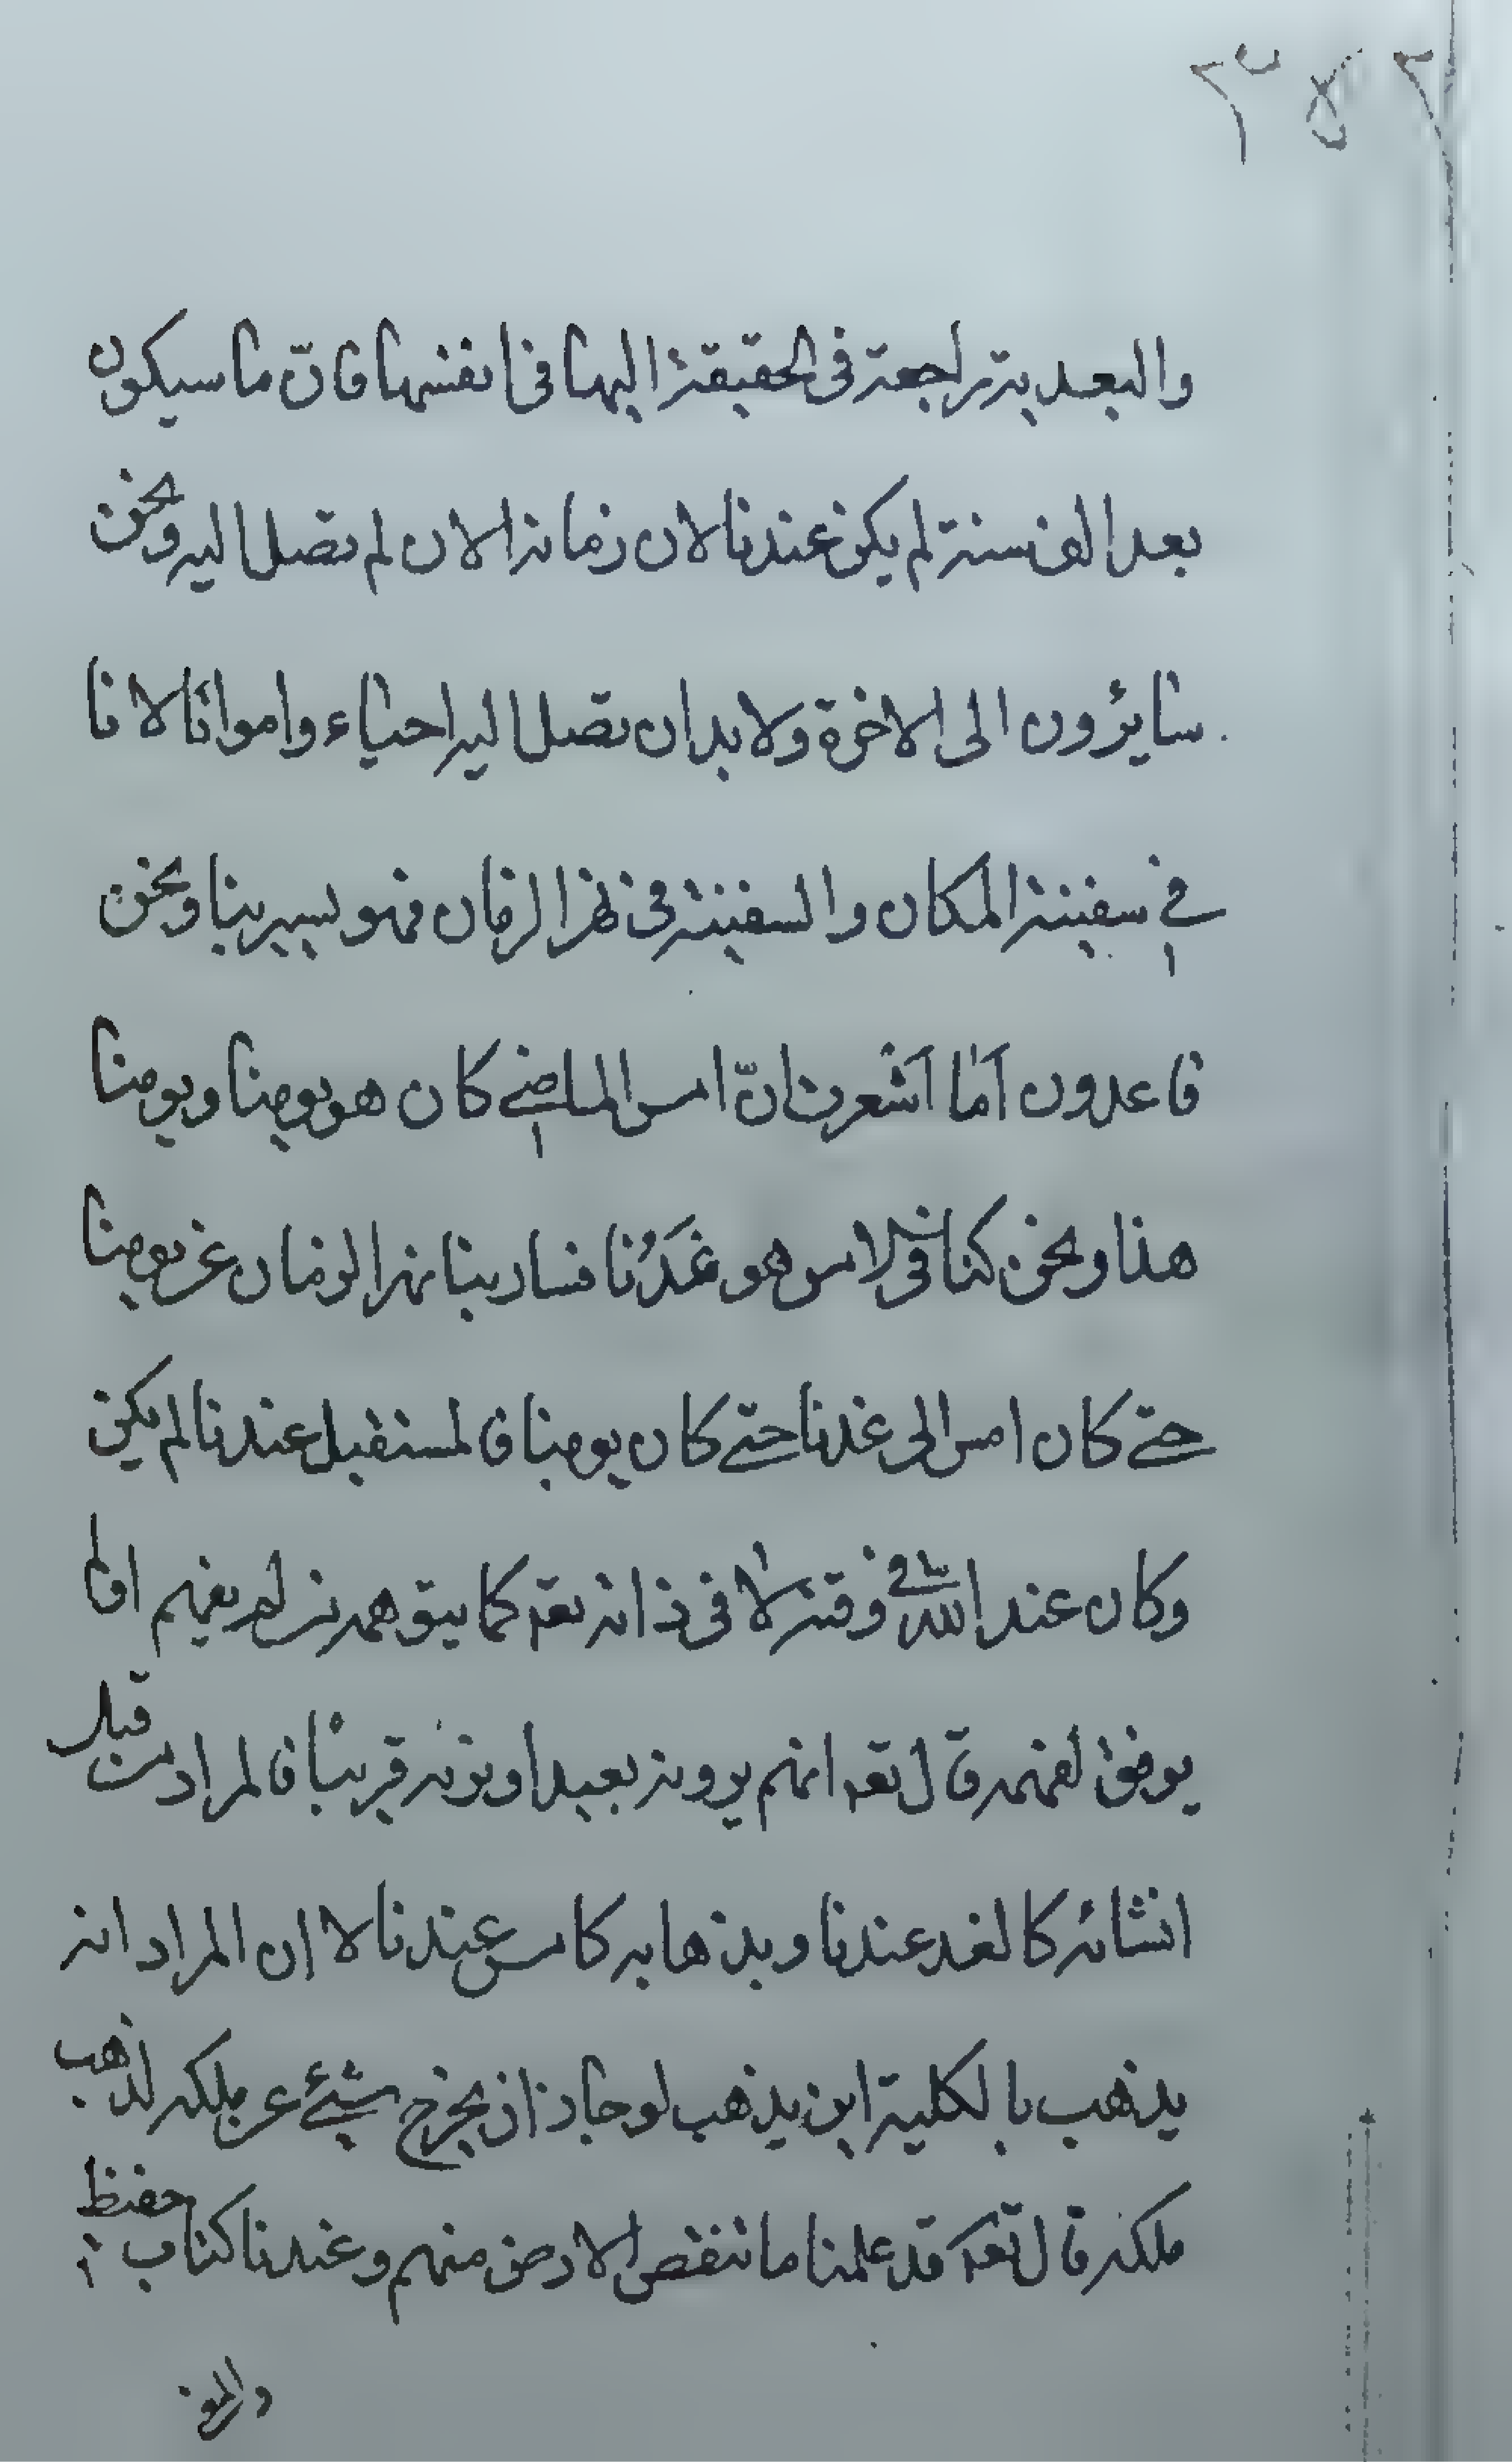 والبعدية راجعة فى الحقيقة اليها فى انفسها فان ما سيكون
بعد الف سنة لم يكن عندنا لان زمانه الان لم نصل اليه ونحن
سايرون الى الاخرة ولا بد ان نصل اليه احياء وامواتا لانا
فى سفينة المكان والسفينة فى نهر الزمان فهو يسير بنا ونحن
قاعدون اما اشعرت ان امس الماضى كان هو يومنا ويومنا
هذا ونحن كنا فى الامس هو غدنا فسار بنا نهر الزمان عن يومنا
حتى كان امس الى غدنا حتى كان يومنا فالمستقبل عندنا لم يكن
وكان عند الله فى وقته لا فى ذاته تعه كما يتوهمه من لم يفهم او لم
يوفق لفهمه قال تعه انهم يرونه بعيدا ونريه قريبا فالمراد من قبل
انشائه كالغد عندنا وبذهابه كامس عندنا لا ان المراد انه
يذهب بالكلية اين يذهب لو جاز ان يخرج شىء عن ملكه لذهب
ملكه قال تعه قد علمنا ما تنقص الارض منهم وعندنا كتاب حفيظ